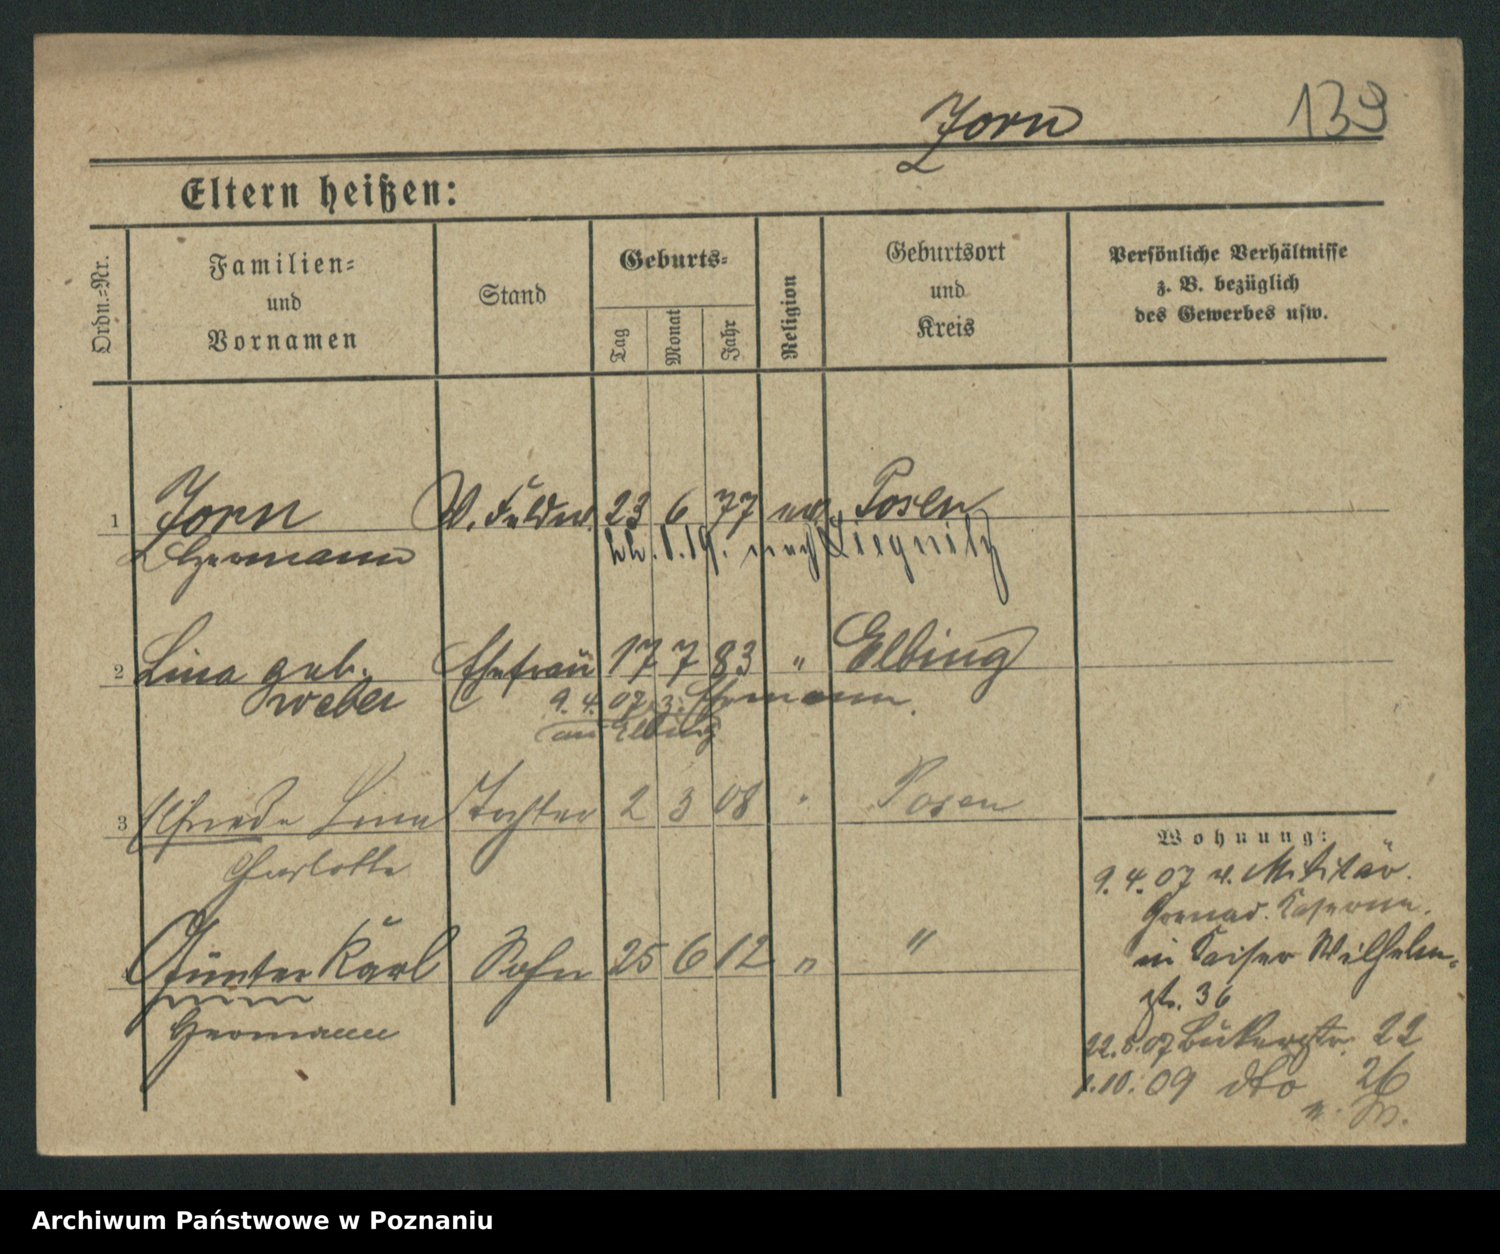 Zorn 139
Eltern heißen:
Ordn.=Nr.
Familien=
und
Vornamen
Stand
Geburts=
Tag
Monat
Jahr
Religion
Geburtsort
und
Kreis
Persönliche Verhältnisse
z. B. bezüglich
des Gewerbes usw.
1 Zorn V. Feldw. 23 6 77 ev. Posen
Hermann 22.1.19. nach Liegnitz
2 Lina geb. Ehefrau 17 7 83 " Elbing
Weber 9.4.07 z. Ehemann.
aus Elbing
3 Elfriede Lina Tochter 2 3 08 " Posen
Charlotte
Günter Karl Sohn 25 6 12 " "
Hermann
Wohnung:
9.4.07 v. Militär.
Grenad. Kaserne.
in Kaiser Wilhelm-
str. 36
22.5.07 Bukerstr. 22
1.10.09 dto 26